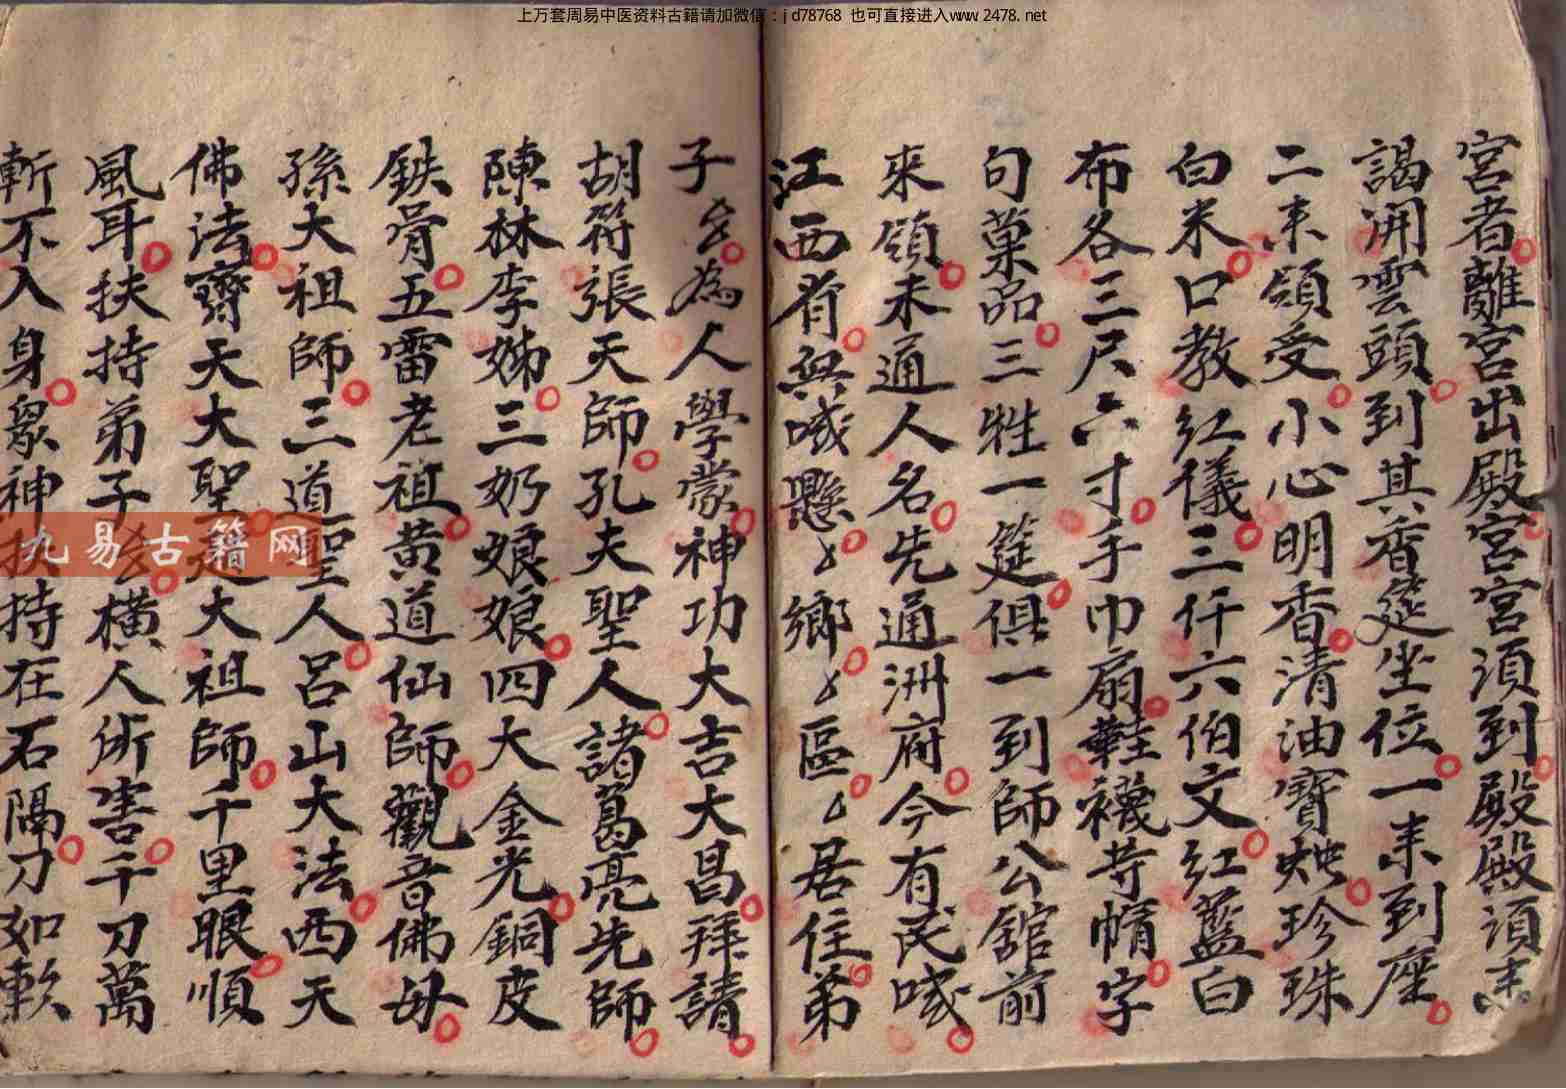 上万套周易中医资料古籍请加微信:jd78768 也可直接进入www.2478.net
宮者離宮出殿宮宮須到殿殿須未
謁開雲頭到其香筵坐位一未到座
二未領受小心明香清油寶燭珍珠
白米口教紅儀三仟六伯文紅藍白
布各三尺六寸手巾扇鞋襪等幘字
句菓品三牲一筵俱一到師公舘前
來領未通人名先通洲府今有民
江西省無縣鄉區居住弟
子為人學蒙神功大吉大昌拜請
胡符張天師孔夫聖人諸葛亮先師
陳林李姊三奶娘娘四大金光銅皮
鉄骨五雷老祖黄道仙師觀音佛母
孫大祖師三道聖人呂山大法西天
佛法齊天大聖大祖師千里眼順
風耳扶持弟子橫人術害千刀萬
斬不入身眾神扶持在石隔刀如軟
九易古籍网